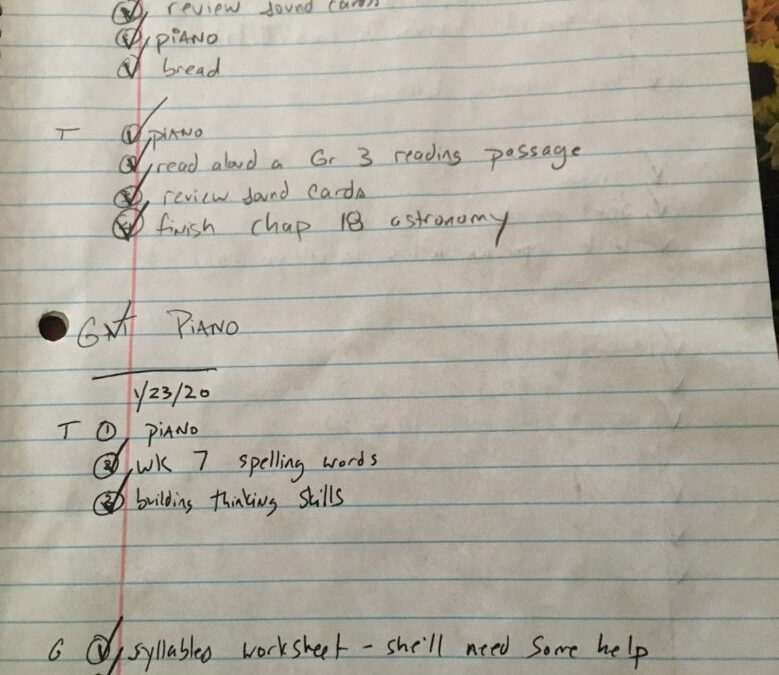 review sound cards
piano
bread
T ① piano
② read aloud a Gr 3 reading passage
③ review sound cards
④ finish chap 18 astronomy
G+T Piano
1/23/20
T ① piano
② wk 7 spelling words
③ building thinking skills
G ① syllables worksheet - she'll need some help